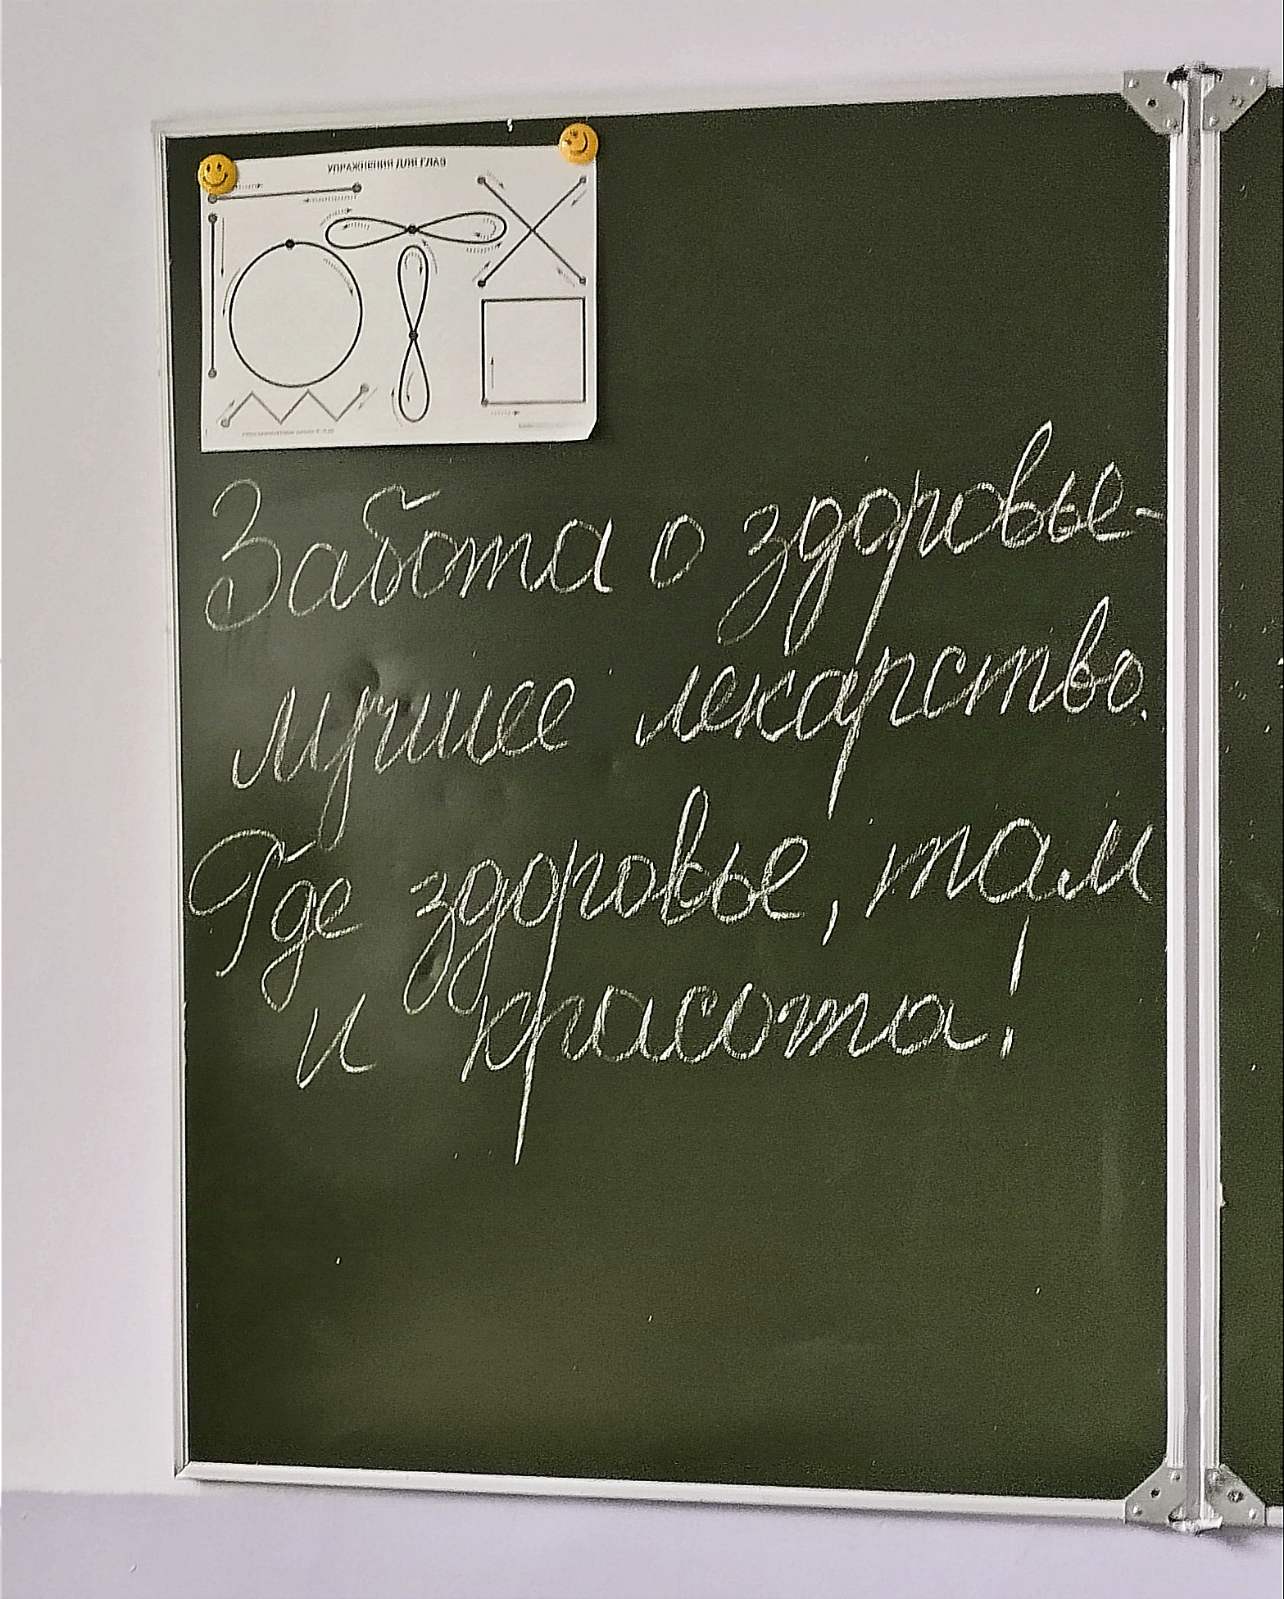 УПРАЖНЕНИЯ ДЛЯ ГЛАЗ
Забота о здоровье-
лучшее лекарство.
Где здоровье, там
и красота!